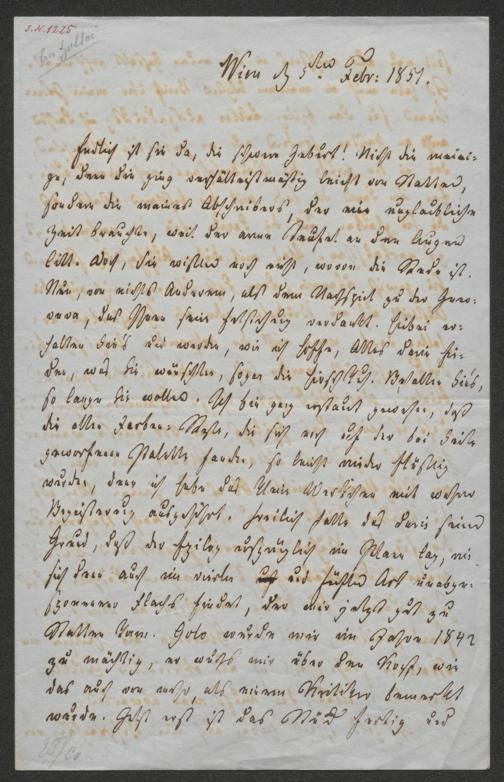 J.N. 1225
Wien d 5ten Febr: 1851.
Endlich ist sie da, die schwere Geburt! Nicht die meini-
ge, denn die ging verhältnißmäßig leicht von Statten,
sondern die meines Abschreibers, der eine unglaubliche
Zeit brauchte, weil der arme Teufel an den Augen
litt. Doch, Sie wissen noch nicht, wovon die Rede ist.
Nun, von nichts Anderem, als dem Nachspiel zu der Geno-
veva, das Ihnen seine Entstehung verdankt. Hiebei er-
halten Sie's und werden, wie ich hoffe, Alles darin fin-
den, was Sie wünschten, sogar die Behalten Sie's,
so lange Sie wollen. Ich bin ganz erstaunt gewesen, daß
die alten Farben-Reste, die sich noch auf der bei Seite
geworfenen Palette fanden, so leicht wieder flüssig
wurden, denn ich habe das kleine Werkchen mit wahrer
Begeisterung ausgeführt. Freilich hatte das darin seinen
Grund, daß der Epilog ursprünglich im Plan lag, wie
sich denn auch im vierten und fünften Act unabge-
sponnener Flachs findet, der mir jetzt gut zu
Statten kam. Golo wurde mir im Jahre 1842
zu mächtig, er wuchs mir über den Kopf, wie
das auch von mehr, als einem Kritiker bemerkt
wurde. Jetzt erst ist das Stück fertig und